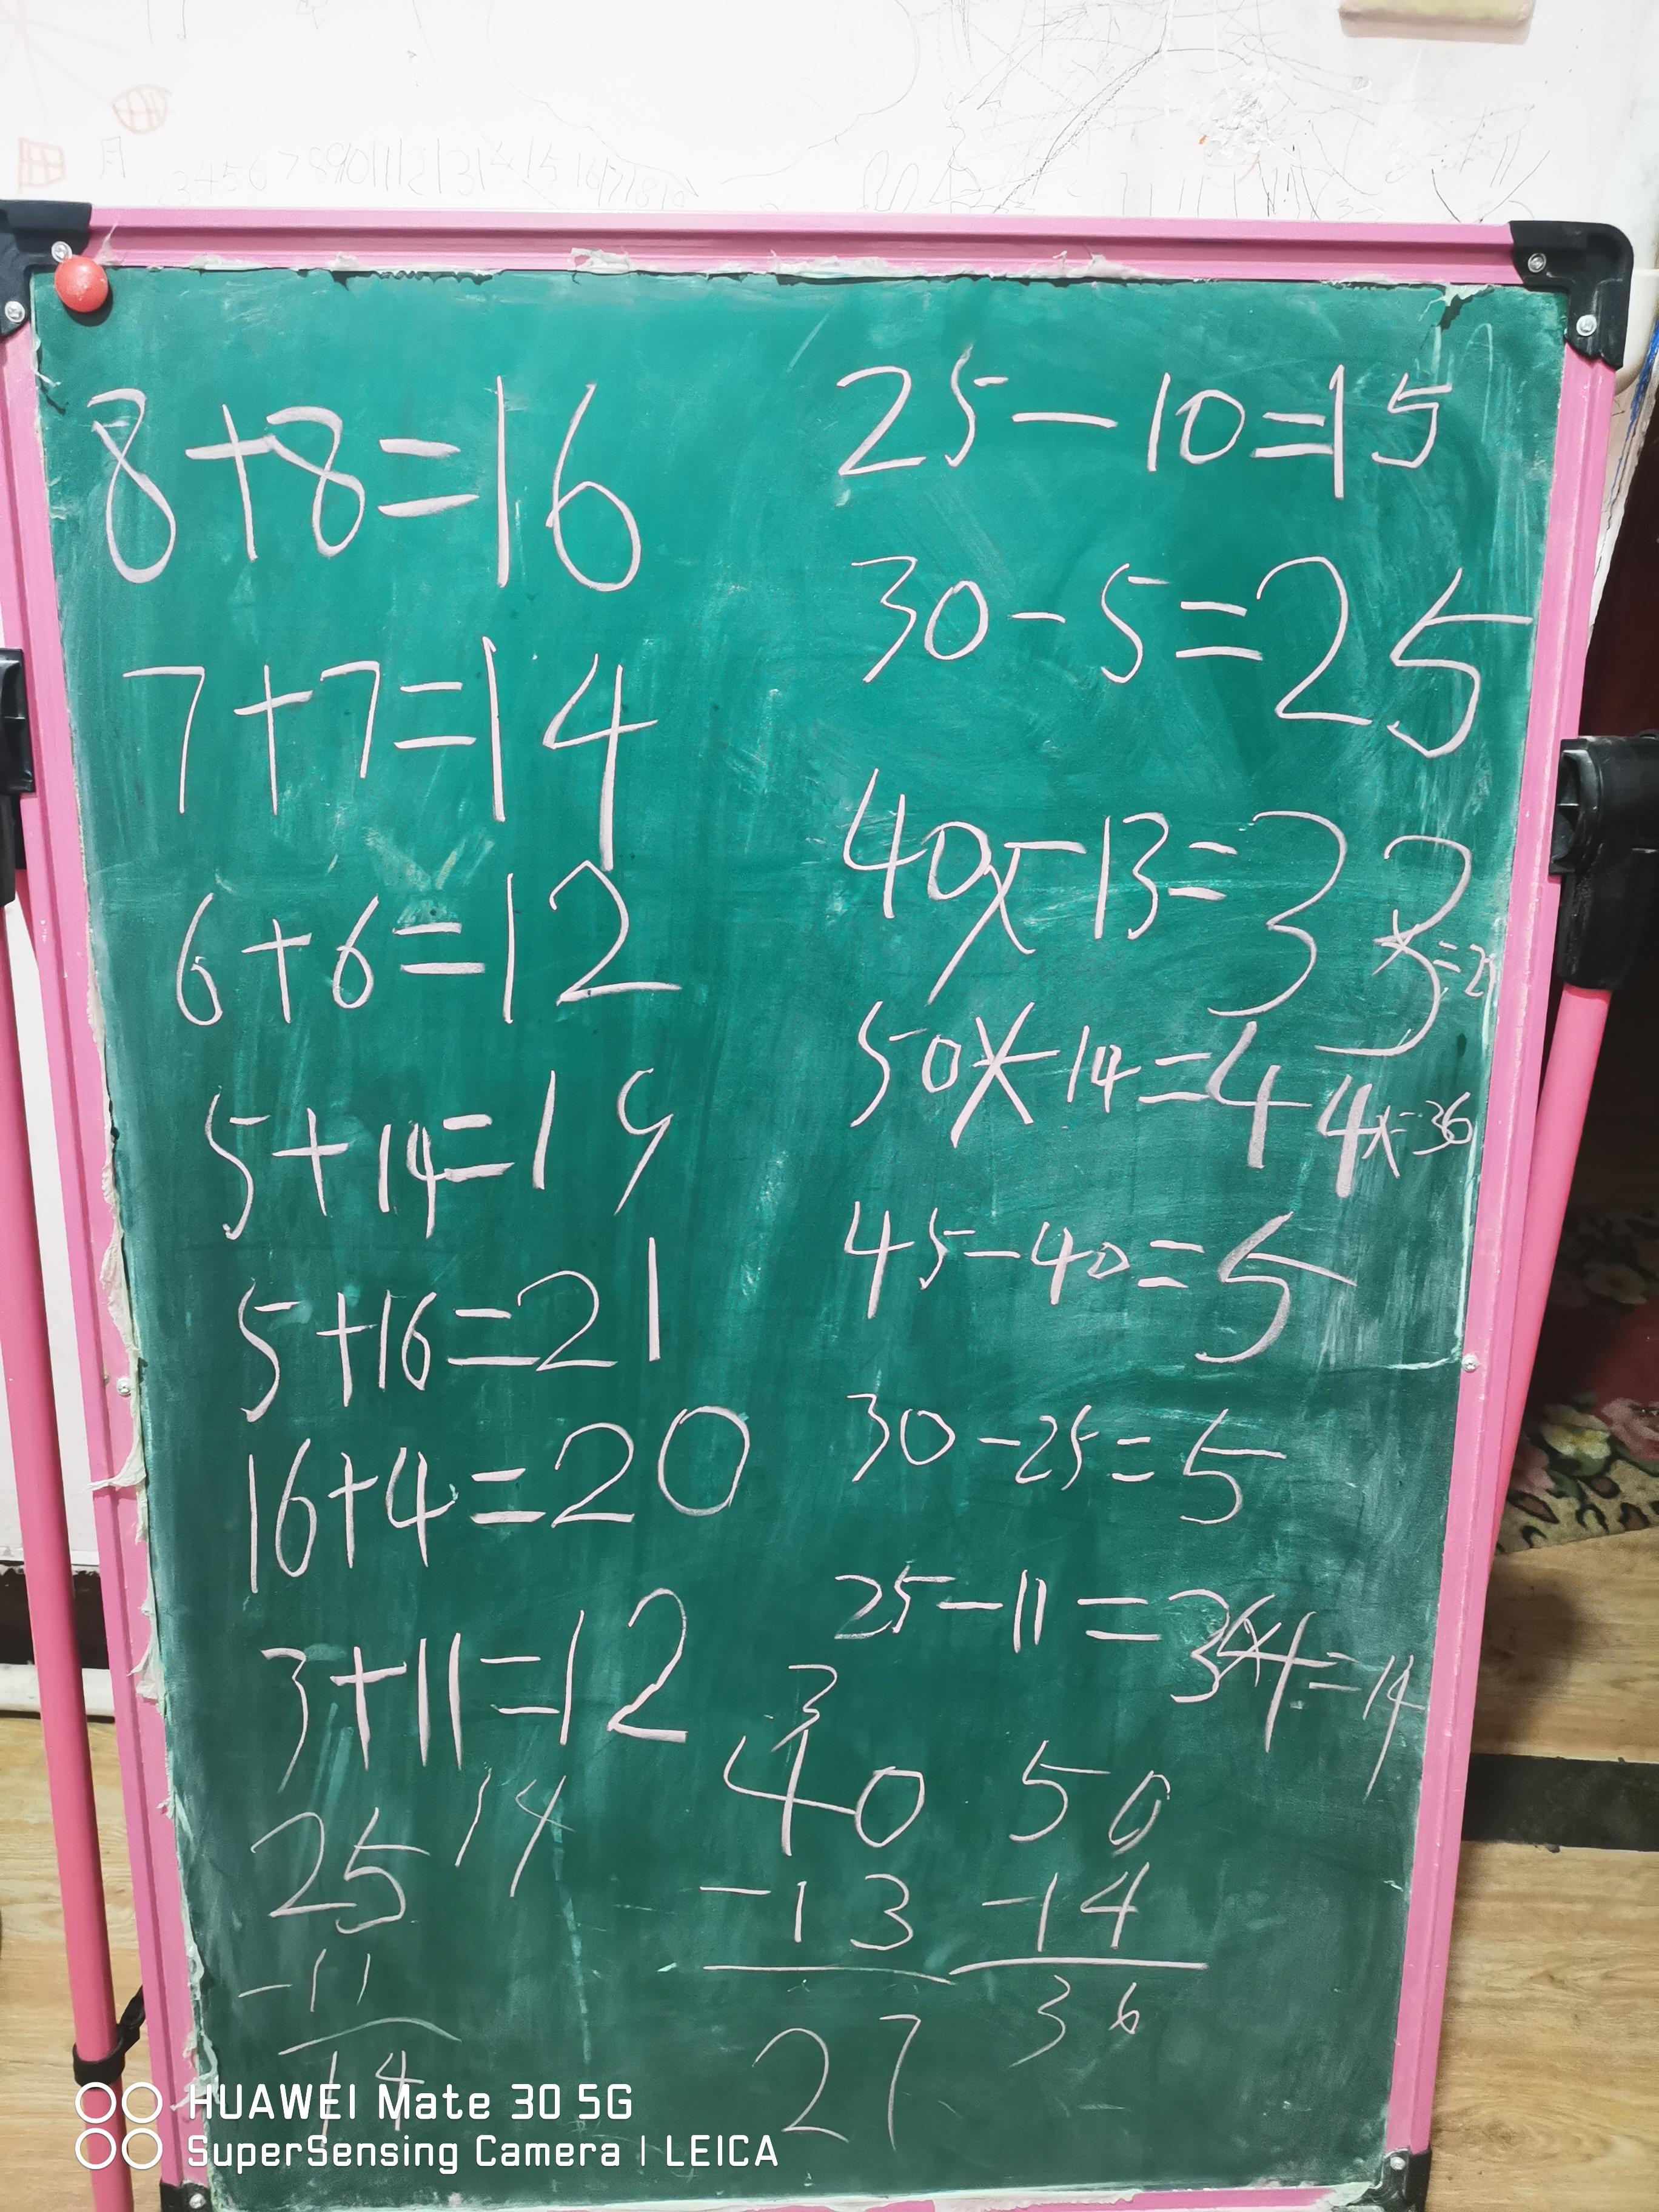 月
2345678910111213141516171819
8+8=16
7+7=14
6+6=12
5+14=19
5+16=21
16+4=20
3+11=12
14
25
-11
14
25-10=15
30-5=25
40-13=33 =27
50-14=44 =36
45-40=5
30-25=5
25-11=34 =14
3
40
-13
27
50
-14
36
HUAWEI Mate 30 5G
SuperSensing Camera | LEICA